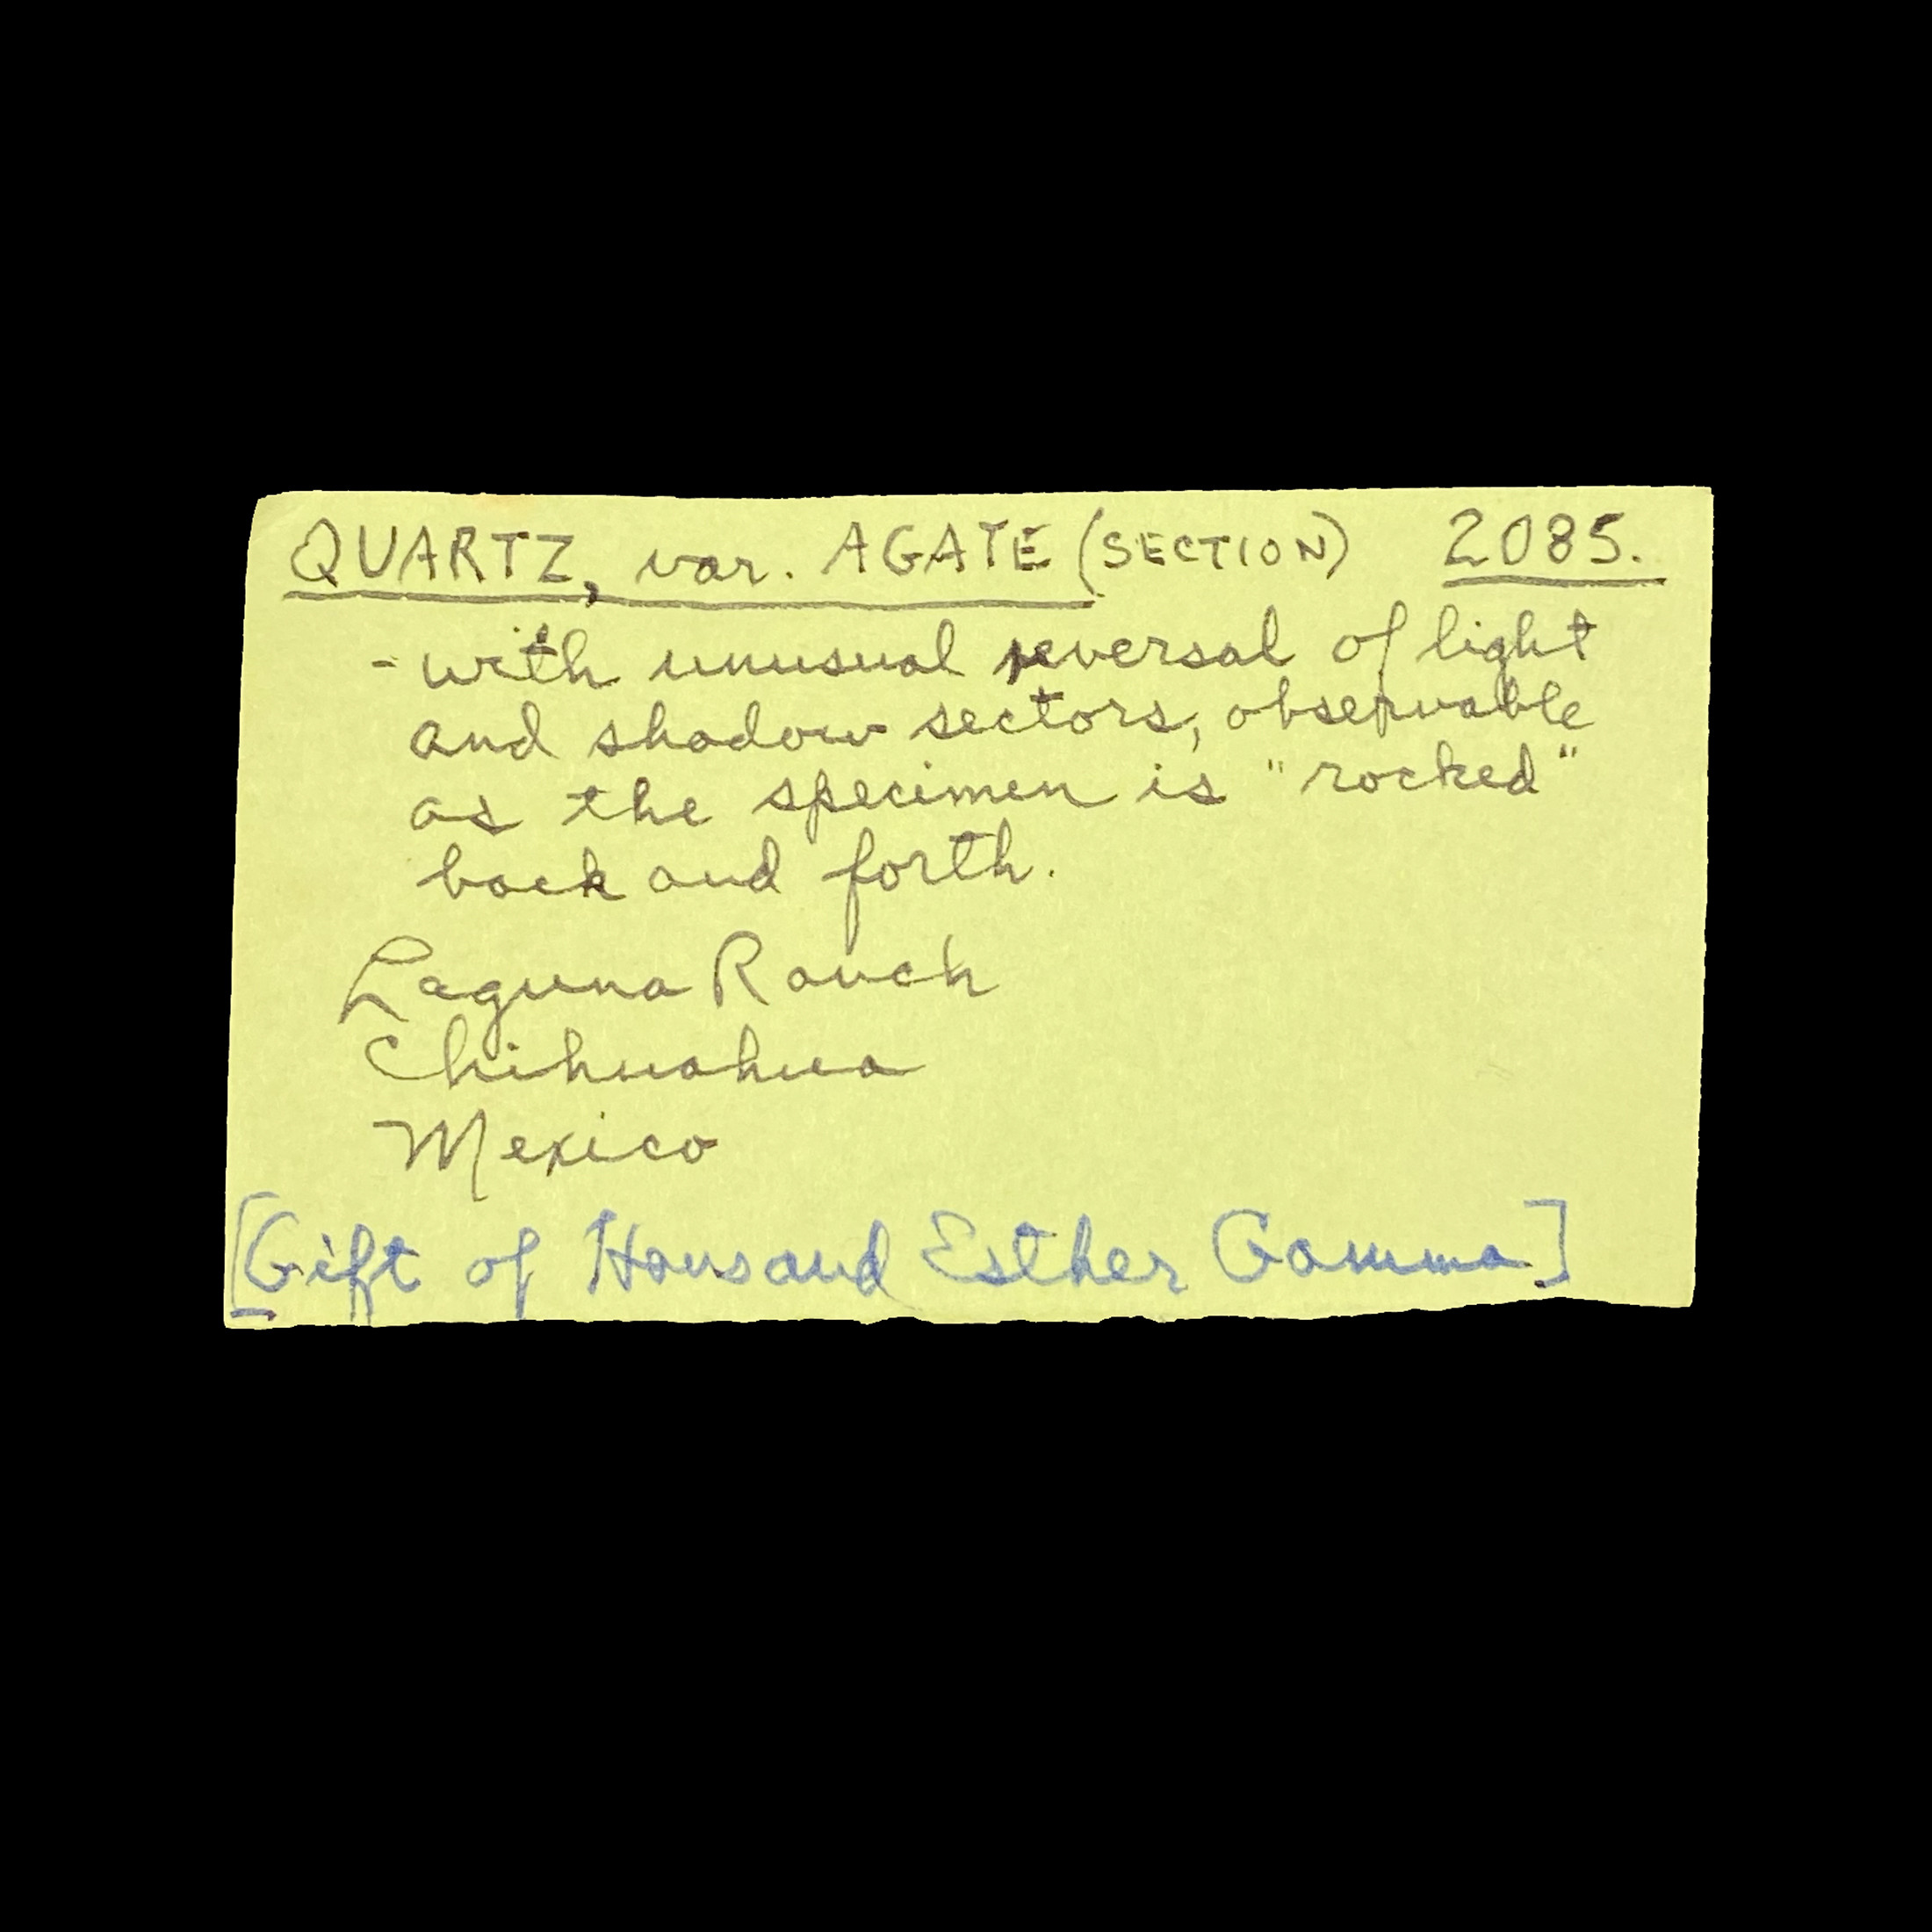 QUARTZ, var. AGATE (SECTION) 2085.
- with unusual reversal of light
and shadow sectors, observable
as the specimen is "rocked"
back and forth.
Laguna Ranch
Chihuahua
Mexico
[Gift of Hans and Esther Gamma]